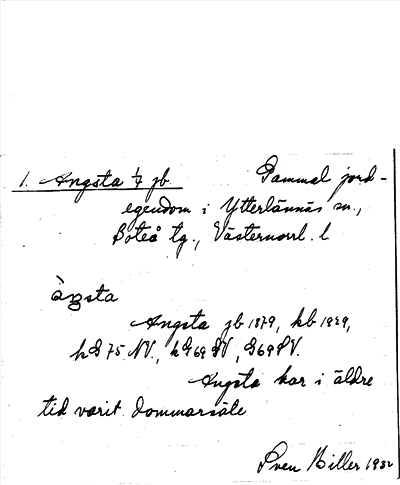 1. Angsta 1/4 jb. Gammal jord-
egendom i Ytterlännäs sn.,
Boteå tg., Västernorrl. l
àŋsta
Angsta jb 1879, kb 1929,
kG 75 NV., kG 69 SV, G 69 SV.
Angsta har i äldre
tid varit dommarsäte
Sven Biller 1932